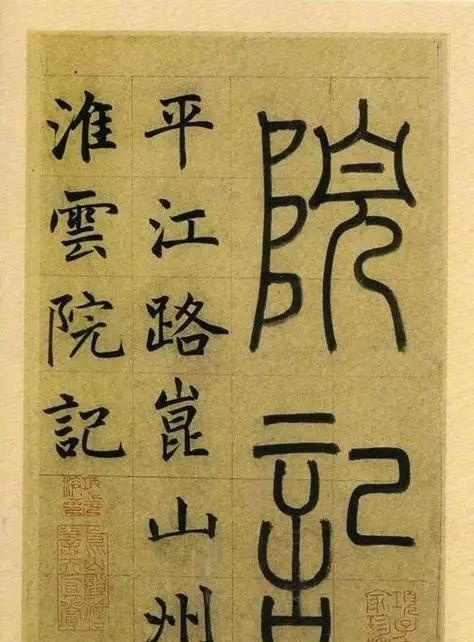 院記
平江路崑山州
淮雲院記